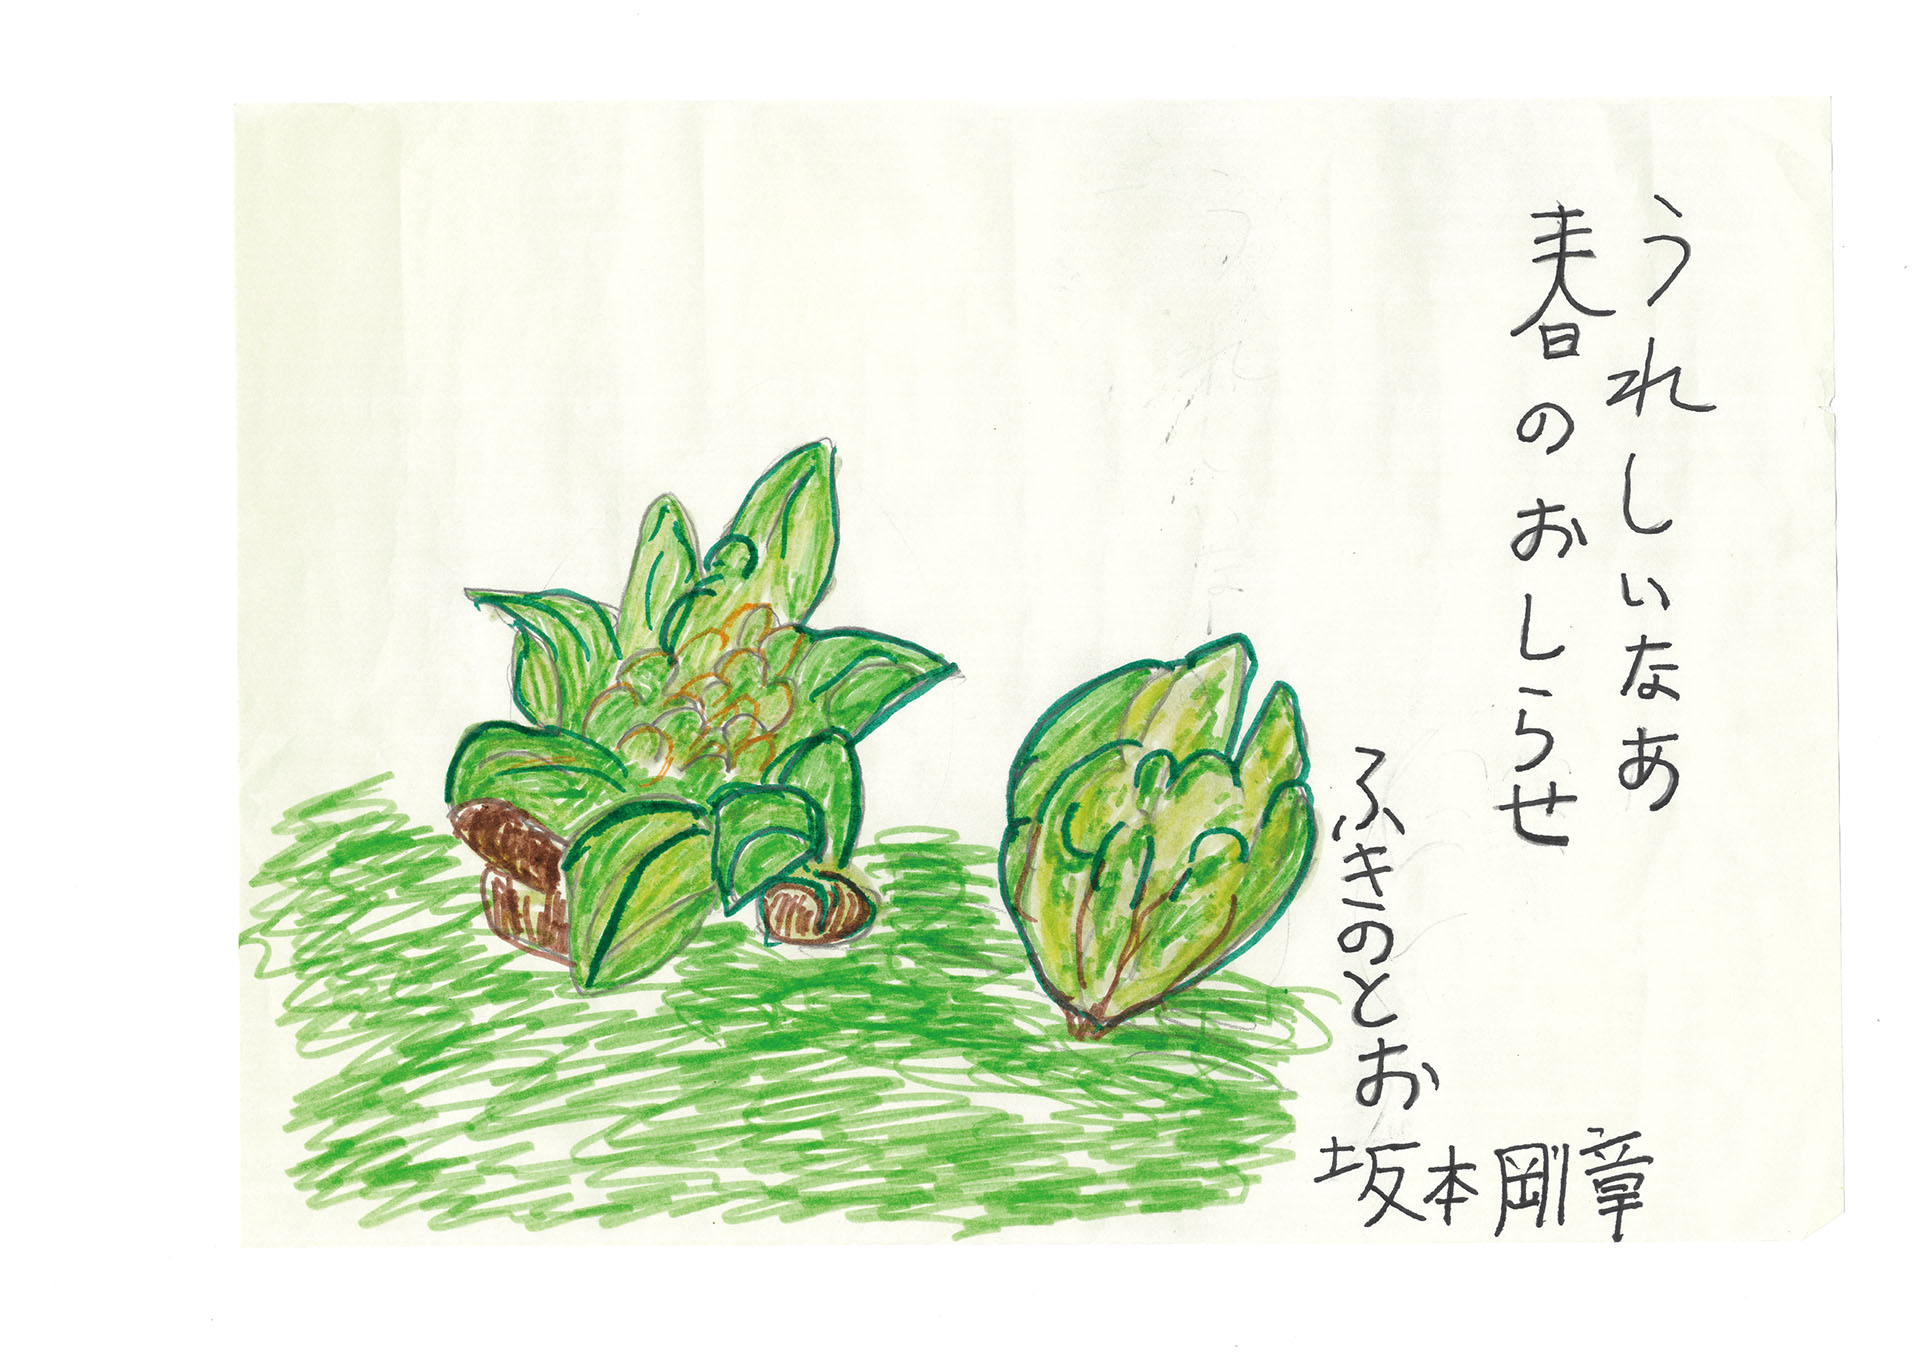 うれしいなあ
春のおしらせ
ふきのとお
坂本剛章